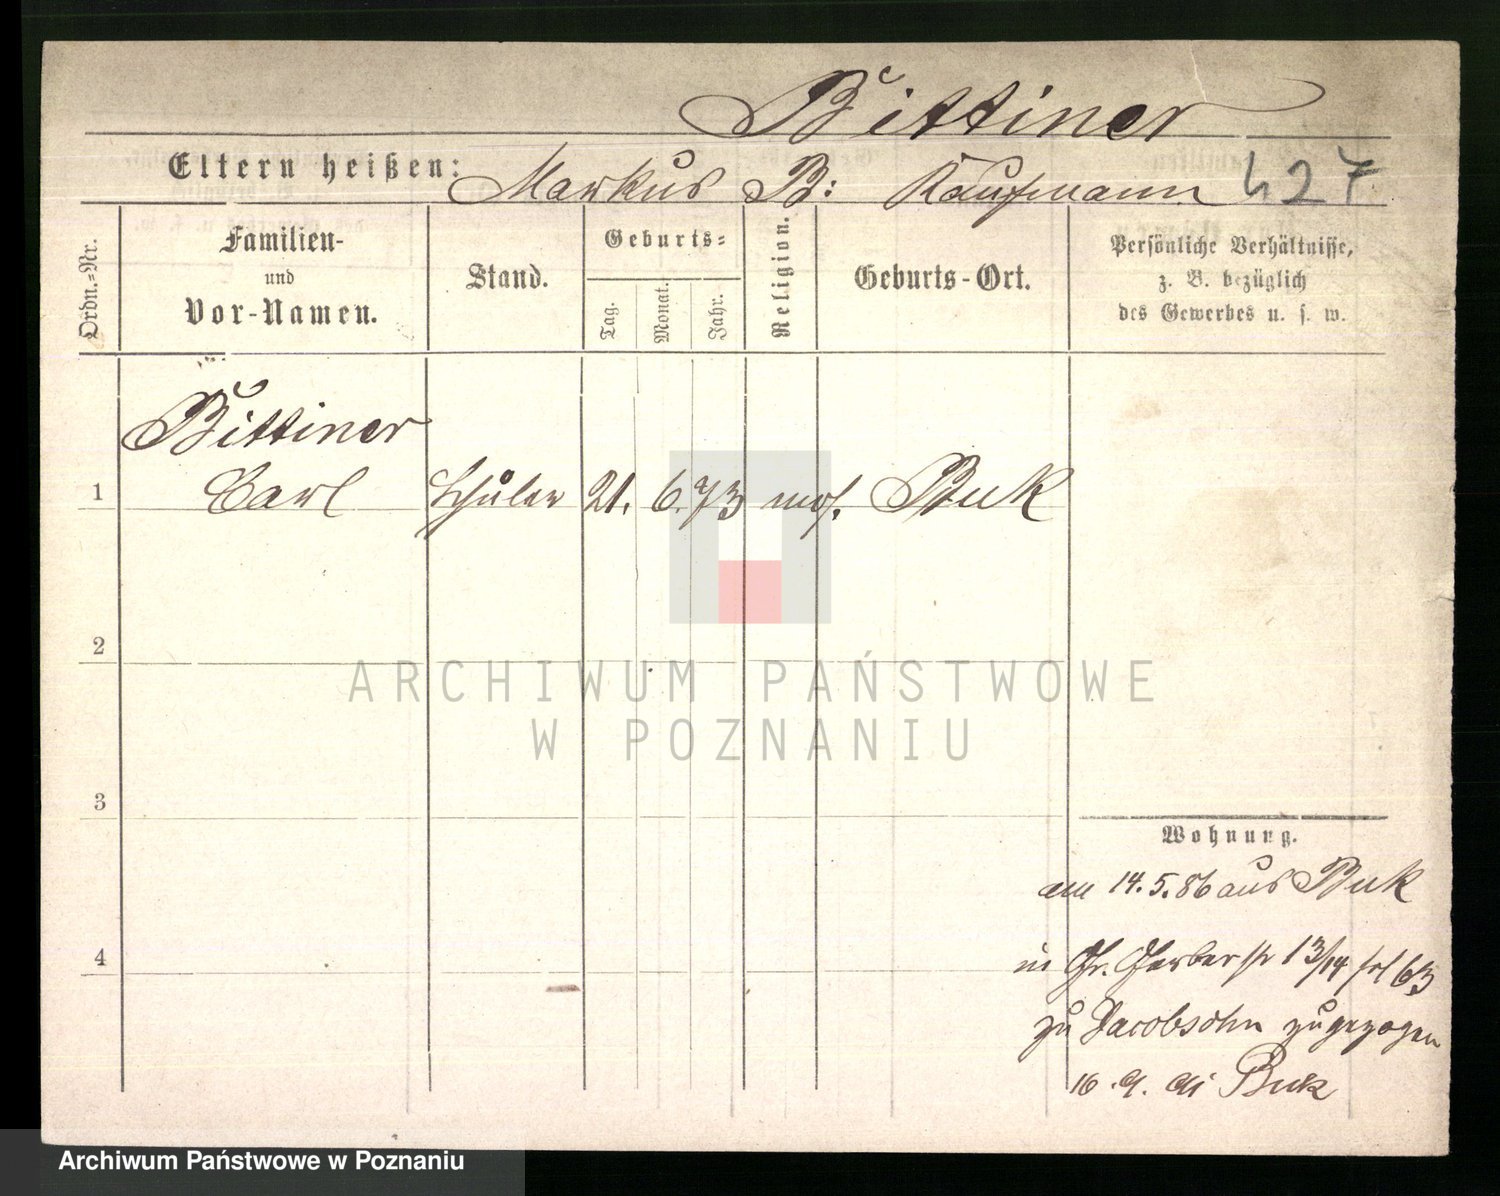 Bittiner
Eltern heißen: Markus B: Kaufmann 427
Ordn.-Nr.
Familien-
und
Vor-Namen.
Stand.
Geburts-
Tag.
Monat.
Jahr.
Religion.
Geburts-Ort.
Persönliche Verhältnisse,
z. B. bezüglich
des Gewerbes u. s. w.
Bittiner
1 Carl Schüler 21. 6. 73 mos. Buk
2
ARCHIWUM PAŃSTWOWE
W POZNANIU
3
Wohnung.
am 14. 5. 86 aus Buk
4
in Gr. Gerberstr 13/14 fol 63
zu Jacobsohn zugezogen
16. 9. Buk
Archiwum Państwowe w Poznaniu